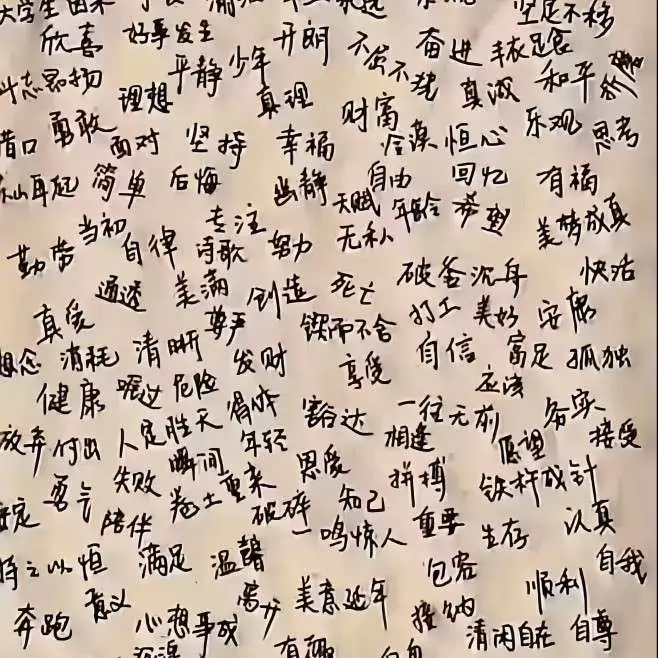 大学生
坚定不移
欣喜 好事发生 开朗 奋进 丰衣足食
斗志昂扬 平静 少年 不屈不挠
理想 真理 真诚 和平
借口 勇敢 面对 坚持 幸福 财富 冷漠 恒心 乐观 思考
东山再起 简单 后悔 幽静 自由 回忆 有福
当初 专注 天赋 年龄 希望 美梦成真
勤劳 自律 诗歌 努力 无私
通透 美满 创造 死亡 破釜沉舟 快活
真爱 尊严 锲而不舍 打工 美好 安康
想念 消耗 清晰 发财 享受 自信 富足 孤独
健康 嘱过 危险 得体 豁达 一往无前 应该 务实
放弃 付出 人定胜天 年轻 相逢 愿望 接受
失败 瞬间 恩爱 拼搏 铁杵成针
安定 勇气 陪伴 卷土重来 破碎 知己
一鸣惊人 重要 生存 认真
持之以恒 满足 温馨 包容 自我
奔跑 意义 离岁 美意延年 接纳 顺利
心想事成 清闲自在 自尊
有趣